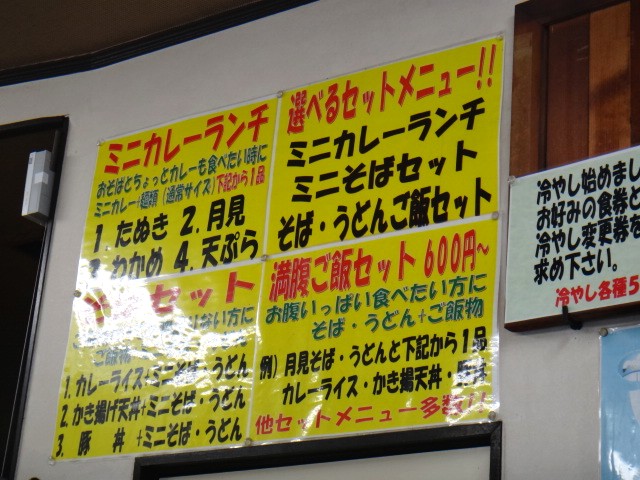 ミニカレーランチ
おそばとちょっとカレーも食べたい時に
ミニカレー+麺類(通常サイズ)下記から1品
1. たぬき 2. 月見
3. わかめ 4. 天ぷら
選べるセットメニュー!!
ミニカレーランチ
ミニそばセット
そば・うどんご飯セット
セット
ない方に
ご飯物
1. カレーライス+ミニそば・うどん
2. かき揚げ天丼+ミニそば・うどん
3. 豚 丼 +ミニそば・うどん
満腹ご飯セット 600円~
お腹いっぱい食べたい方に
そば・うどん+ご飯物
例) 月見そば・うどんと下記から1品
カレーライス・かき揚天丼・豚丼
他セットメニュー多数!!
冷やし始めまし
お好みの食券と
冷やし変更券を
求め下さい。
冷やし各種5